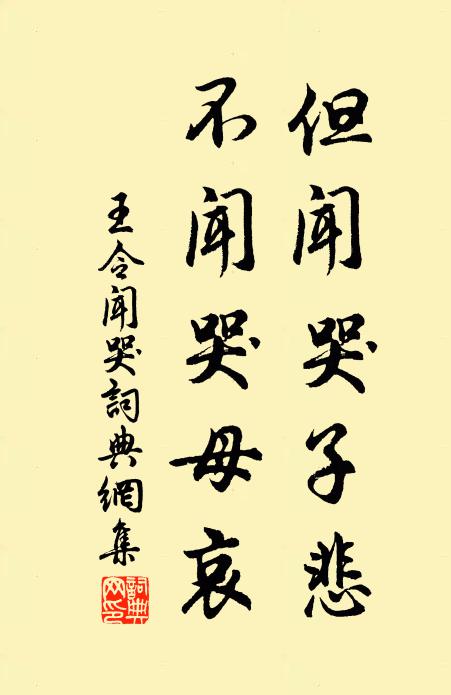 但闻哭子悲
不闻哭母哀
王令闻哭詞典網集
詞典网印